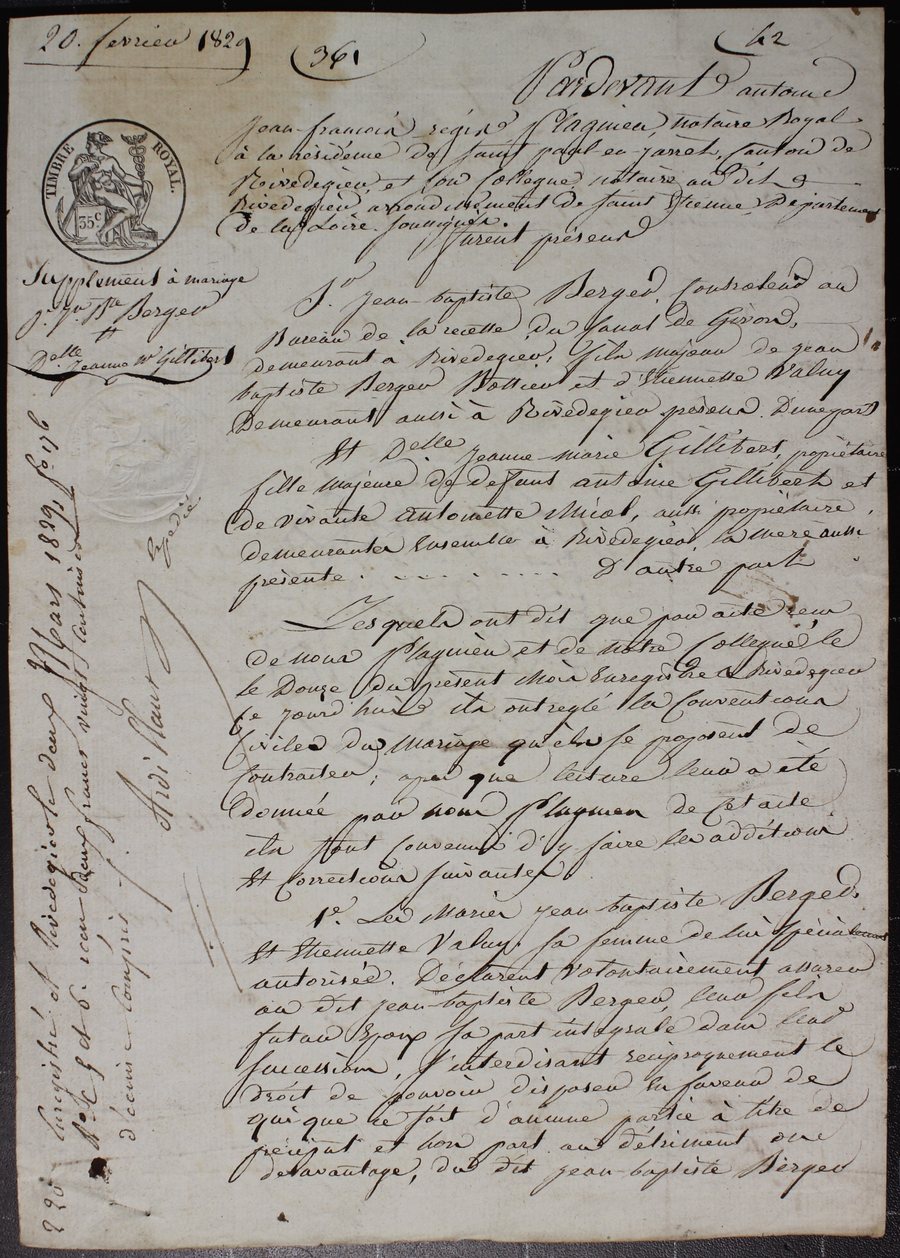 20. fevrier 1829
(361
(42
Pardevant antoine
jean-françois régis Plagnieu, notaire Royal
à la résidence de saint paul en jarret, canton de
Rivedegier, et son Collegue notaire au dit
Rivedegier arrondissement de saint Etienne, Departement
de la Loire. soussignés.
furent présens
TIMBRE ROYAL.
35c
Supplement à mariage
jn Bte Berger
et
Delle Jeanne Mie Gillibert
Sr jean-baptiste Berger, Controleur au
Bureau de la recette du Canal de Givors,
demeurant à Rivedegier, fils majeur de jean
baptiste Berger Rottier et d'Etiennette Valuy
Demeurant aussi à Rivedegier présens. D'une part
Et Delle Jeanne-marie Gillibert, propriétaire
fille majeure de defunt antoine Gillibert et
de vivante antoinette Micol, aussi propriétaire,
demeurantes Ensemble à Rivedegier la mere aussi
présente. . . . . . . . . . . D'autre part.
Lesquels ont dit que par acte reçu
de nous Plagnieu et de notre Collegue le
le Douze du présent mois Enregistré à Rivedegier
ce jourd'hui ils ont reglé les Conventions
Civiles du Mariage qu'ils se proposent de
Contracter; après que lecture leur a été
donnée par nous Plagnieu de cet acte
ils sont Convenus d'y faire les additions
Et Corrections suivantes.
1o. Les Mariés jean-baptiste Berger
Et Etiennette Valuy, sa femme de lui spécialement
autorisée. Déclarent volontairement assurer
au dit jean-baptiste Berger, leur fils
futur Epoux sa part intégrale dans leur
succession, s'interdisant reciproquement le
Droit de pouvoir disposer en faveur de
qui que ce soit d'aucune partie à titre de
préciput et hors part au détriment ou
desavantage, du dit jean-baptiste Berger
220 Enregistré à Rivedegier le deux Mars 1829, fo 176
Ro Ces 5 et 6. reçu deux francs vingt centimes
décime Compris.